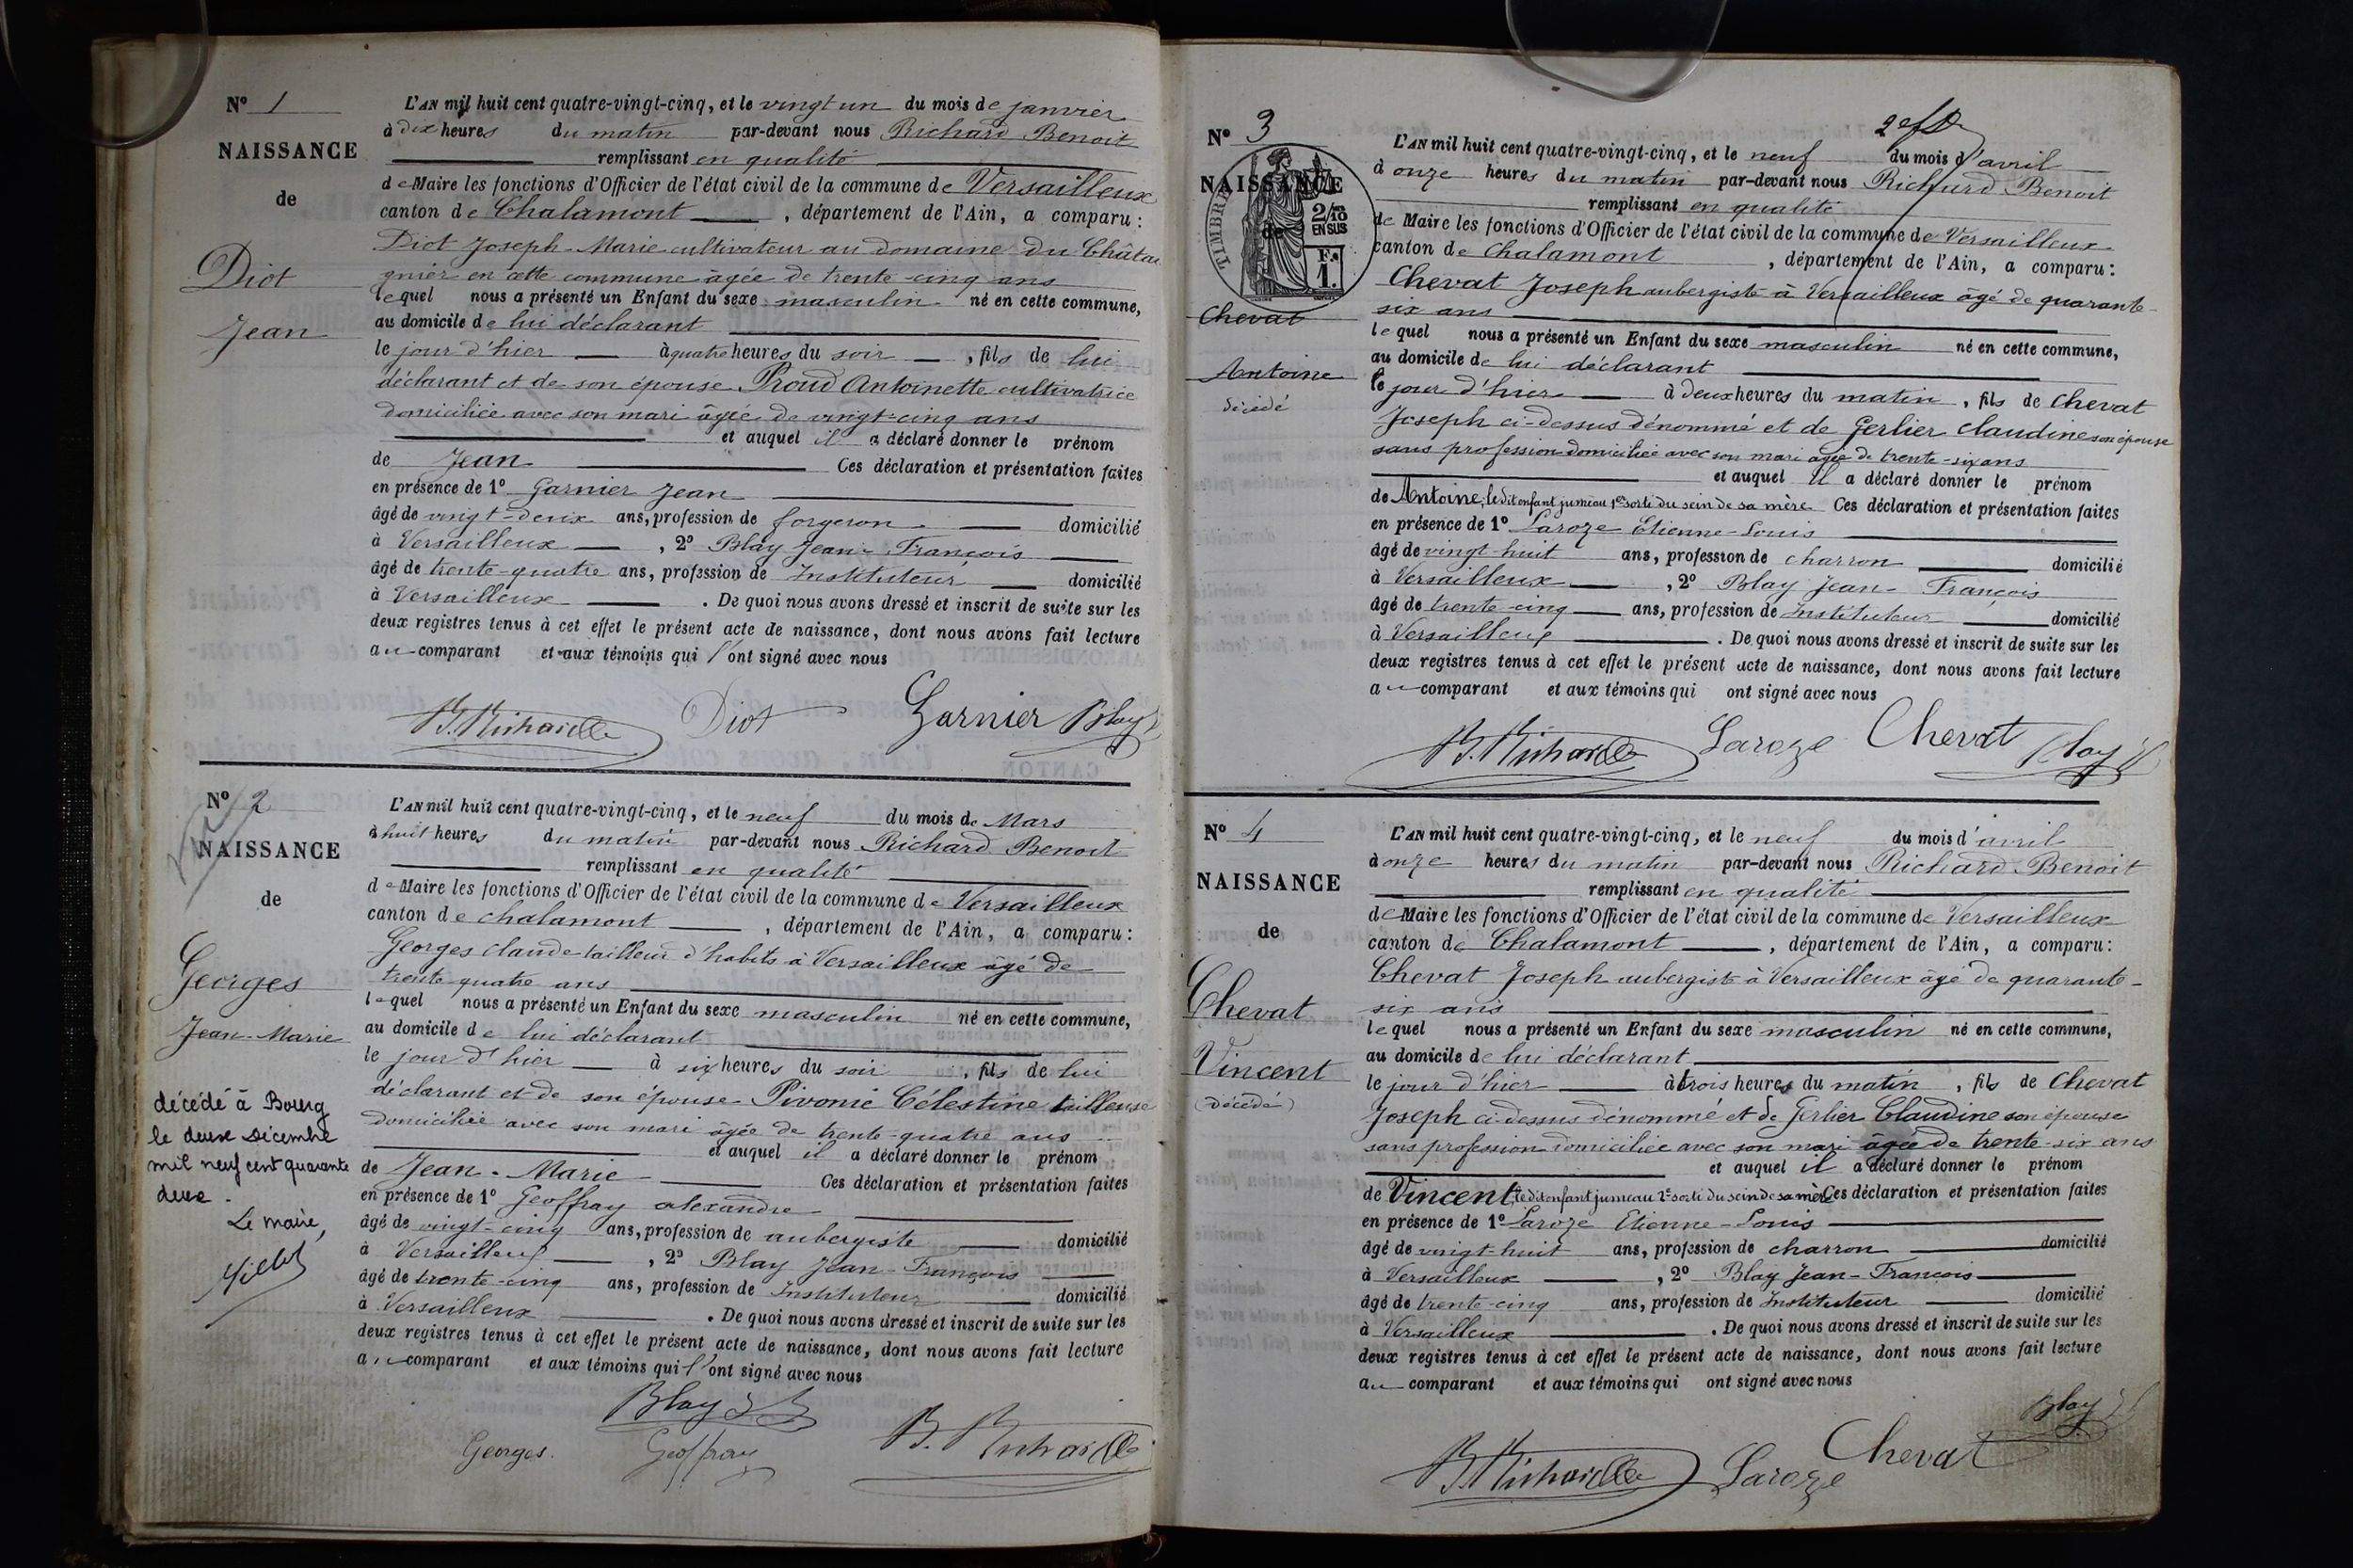 N° 1
NAISSANCE
de
Diot
Jean
L'AN mil huit cent quatre-vingt-cinq, et le vingt un du mois de janvier
à dix heures du matin par-devant nous Richard Benoit
remplissant en qualité
de Maire les fonctions d'Officier de l'état civil de la commune de Versailleux
canton de Chalamont, département de l'Ain, a comparu :
Diot Joseph-Marie cultivateur au domaine du Châtai
gnier en cette commune âgée de trente-cinq ans
lequel nous a présenté un Enfant du sexe masculin né en cette commune,
au domicile de lui déclarant
le jour d'hier à quatre heures du soir, fils de lui
déclarant et de son épouse Proud Antoinette cultivatrice
domiciliée avec son mari âgée de vingt-cinq ans
et auquel il a déclaré donner le prénom
de Jean Ces déclaration et présentation faites
en présence de 1° Garnier Jean
âgé de vingt-deux ans, profession de forgeron domicilié
à Versailleux, 2° Blay Jean-François
âgé de trente-quatre ans, profession de Instituteur domicilié
à Versailleux. De quoi nous avons dressé et inscrit de suite sur les
deux registres tenus à cet effet le présent acte de naissance, dont nous avons fait lecture
au comparant et aux témoins qui l'ont signé avec nous
Diot Garnier Blay
N° 2
NAISSANCE
de
Georges
Jean-Marie
décédé à Bourg
le deux Décembre
mil neuf cent quarante
deux.
Le maire,
L'AN mil huit cent quatre-vingt-cinq, et le neuf du mois de Mars
à huit heures du matin par-devant nous Richard Benoit
remplissant en qualité
de Maire les fonctions d'Officier de l'état civil de la commune de Versailleux
canton de chalamont, département de l'Ain, a comparu :
Georges claude tailleur d'habits à Versailleux âgé de
trente quatre ans
lequel nous a présenté un Enfant du sexe masculin né en cette commune,
au domicile de lui déclarant
le jour d'hier à six heures du soir, fils de lui
déclarant et de son épouse Pivonie Célestine tailleuse
domiciliée avec son mari âgée de trente-quatre ans
et auquel il a déclaré donner le prénom
de Jean-Marie Ces déclaration et présentation faites
en présence de 1° Geoffray alexandre
âgé de vingt-cinq ans, profession de aubergiste domicilié
à Versailleux, 2° Blay Jean-François
âgé de trente-cinq ans, profession de Instituteur domicilié
à Versailleux. De quoi nous avons dressé et inscrit de suite sur les
deux registres tenus à cet effet le présent acte de naissance, dont nous avons fait lecture
au comparant et aux témoins qui l'ont signé avec nous
Blay
Georges. Geoffray
N° 3
NAISSANCE
de
TIMBRE
2/10
EN SUS
F.
1.
Chevat
Antoine
décédé
L'AN mil huit cent quatre-vingt-cinq, et le neuf du mois d'avril
à onze heures du matin par-devant nous Richard Benoit
remplissant en qualité
de Maire les fonctions d'Officier de l'état civil de la commune de Versailleux
canton de Chalamont, département de l'Ain, a comparu :
Chevat Joseph aubergiste à Versailleux âgé de quarante-
six ans
lequel nous a présenté un Enfant du sexe masculin né en cette commune,
au domicile de lui déclarant
le jour d'hier à deux heures du matin, fils de Chevat
Joseph ci-dessus dénommé et de Gerlier claudine son épouse
sans profession domiciliée avec son mari âgée de trente-six ans
et auquel il a déclaré donner le prénom
de Antoine, ledit enfant jumeau 1er sorti du sein de sa mère Ces déclaration et présentation faites
en présence de 1° Laroze Etienne-Louis
âgé de vingt-huit ans, profession de charron domicilié
à Versailleux, 2° Blay Jean-François
âgé de trente-cinq ans, profession de Instituteur domicilié
à Versailleux. De quoi nous avons dressé et inscrit de suite sur les
deux registres tenus à cet effet le présent acte de naissance, dont nous avons fait lecture
au comparant et aux témoins qui ont signé avec nous
Laroze Chevat Blay
N° 4
NAISSANCE
de
Chevat
Vincent
(décédé)
L'AN mil huit cent quatre-vingt-cinq, et le neuf du mois d'avril
à onze heures du matin par-devant nous Richard Benoit
remplissant en qualité
de Maire les fonctions d'Officier de l'état civil de la commune de Versailleux
canton de Chalamont, département de l'Ain, a comparu :
Chevat Joseph aubergiste à Versailleux âgé de quarante-
six ans
lequel nous a présenté un Enfant du sexe masculin né en cette commune,
au domicile de lui déclarant
le jour d'hier à trois heures du matin, fils de Chevat
Joseph ci-dessus dénommé et de Gerlier Claudine son épouse
sans profession domiciliée avec son mari âgée de trente-six ans
et auquel il a déclaré donner le prénom
de Vincent, ledit enfant jumeau 2e sorti du sein de sa mère Ces déclaration et présentation faites
en présence de 1° Laroze Etienne-Louis
âgé de vingt-huit ans, profession de charron domicilié
à Versailleux, 2° Blay Jean-François
âgé de trente-cinq ans, profession de Instituteur domicilié
à Versailleux. De quoi nous avons dressé et inscrit de suite sur les
deux registres tenus à cet effet le présent acte de naissance, dont nous avons fait lecture
au comparant et aux témoins qui ont signé avec nous
Blay
Laroze Chevat